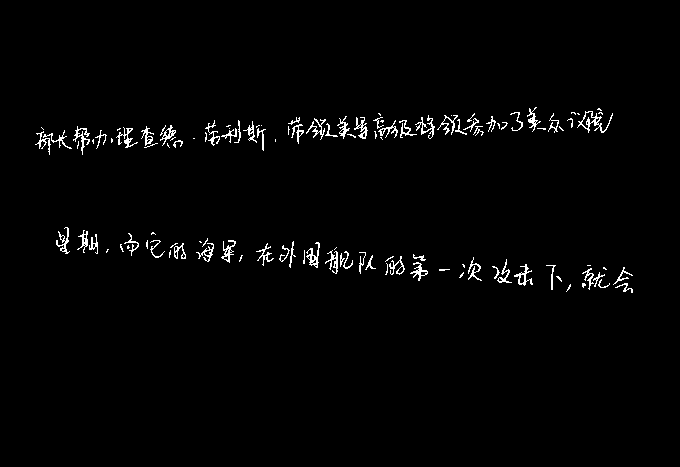 部长帮办理查德·劳利斯,带领美军高级将领参加了美众议院
星期,而它的海军,在外国舰队的第一次攻击下,就会